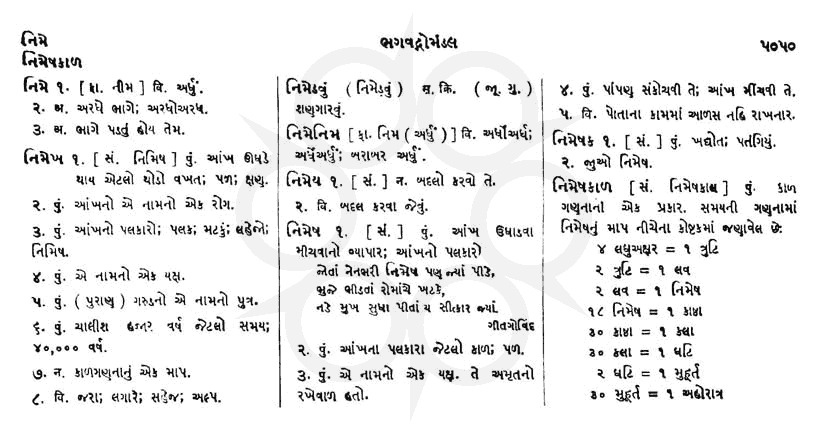 નિમે
ભગવદ્ગોમંડલ
૫૦૫૦
નિમેષકાળ
નિમે ૧. [ ફા. નીમ ] વિ. અર્ધું.
૨. અ. અરધે ભાગે; અરધોઅરધ.
૩. અ. ભાગે પડતું હોય તેમ.
નિમેખ ૧. [ સં. નિમિષ ] પું. આંખ ઊઘડે
થાય એટલો થોડો વખત; પળ; ક્ષણ.
૨. પું. આંખનો એ નામનો એક રોગ.
૩. પું. આંખનો પલકારો; પલક; મટકું; લહેજો;
નિમિષ.
૪. પું. એ નામનો એક યક્ષ.
૫. પું. ( પુરાણ ) ગરુડનો એ નામનો પુત્ર.
૬. પું. ચાલીશ હજાર વર્ષ જેટલો સમય;
૪૦,૦૦૦ વર્ષ.
૭. ન. કાળગણનાનું એક માપ.
૮. વિ. જરા; લગારે; સહેજ; અલ્પ.
નિમેડવું ( નિમેડ઼વું ) સ. ક્રિ. ( જૂ. ગુ. )
શણગારવું.
નિમેનિમ [ ફા. નિમ ( અર્ધું ) ] વિ. અર્ધોઅર્ધ;
અર્ધેઅર્ધું; બરાબર અર્ધું.
નિમેય ૧. [ સં. ] ન. બદલો કરવો તે.
૨. વિ. બદલ કરવા જેવું.
નિમેષ ૧. [ સં. ] પું. આંખ ઉઘાડવા
મીંચવાનો વ્યાપાર; આંખનો પલકારો
જોતાં નેનભરી નિમેષ પણ જ્યાં પીડે,
ભુજે ભીડતાં રોમાંચે ખટકે,
નડે મુખ સુધા પીતાં ય સીત્કાર જ્યાં.
ગીતગોવિંદ
૨. પું. આંખના પલકારા જેટલો કાળ; પળ.
૩. પું. એ નામનો એક યક્ષ. તે અમૃતનો
રખેવાળ હતો.
૪. પું. પાંપણ સંકોચવી તે; આંખ મીંચવી તે.
૫. વિ. પોતાના કામમાં આળસ નહિ રાખનાર.
નિમેષક ૧. [ સં. ] પું. ખદ્યોત; પતંગિયું.
૨. જુઓ નિમેષ.
નિમેષકાળ [ સં. નિમેષકાલ ] પું. કાળ
ગણનાનો એક પ્રકાર. સમયની ગણનામાં
નિમેષનું માપ નીચેના કોષ્ટકમાં જણાવેલ છે:
૪ લઘુઅક્ષર = ૧ ત્રુટિ
૨ ત્રુટિ = ૧ લવ
૨ લવ = ૧ નિમેષ
૧૮ નિમેષ = ૧ કાષ્ઠા
૩૦ કાષ્ઠા = ૧ કલા
૩૦ કલા = ૧ ઘટિ
૨ ઘટિ = ૧ મુહૂર્ત
૩૦ મુહૂર્ત = ૧ અહોરાત્ર